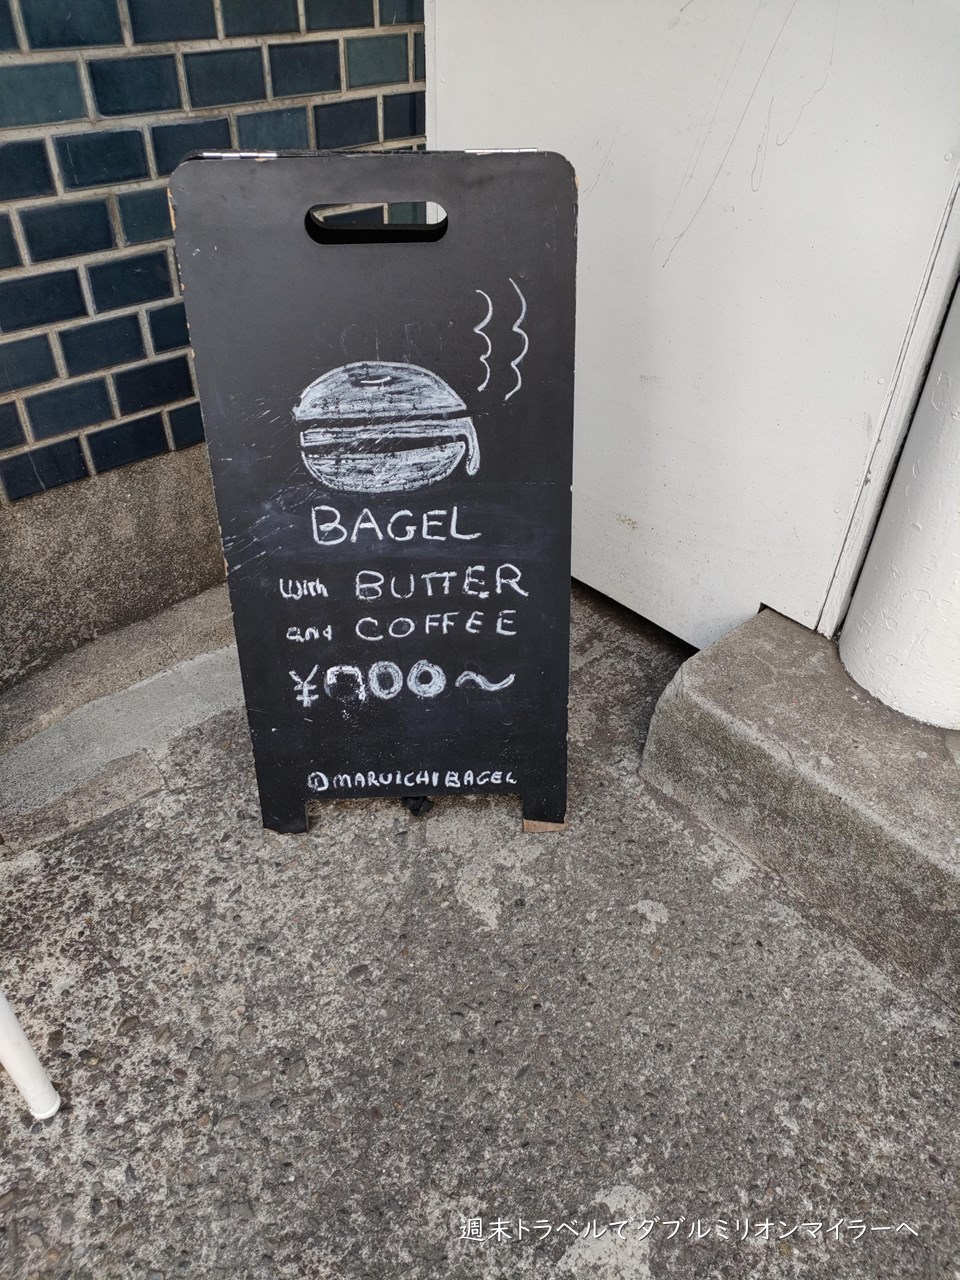 BAGEL
with BUTTER
and COFFEE
¥700〜
@MARUICHIBAGEL
週末トラベルでダブルミリオンマイラーへ